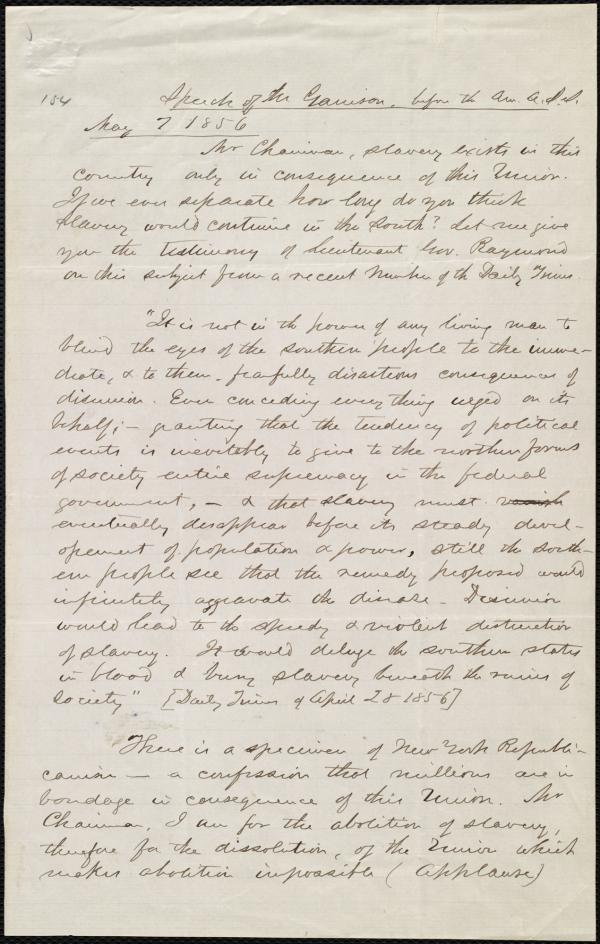 154
Speech of Mr Garrison, before the Am. A.S.S.
May 7 1856
Mr Chairman, slavery exists in this
country only in consequence of this Union.
If we ever separate how long do you think
slavery would continue in the South? Let me give
you the testimony of Lieutenant Gov. Raymond
on this subject from a recent number of the Daily Times.
"It is not in the power of any living man to
blind the eyes of the southern people to the imme-
diate, & to them, fearfully disastrous consequences of
disunion. Even conceding everything urged on its
behalf; – granting that the tendency of political
events is inevitably to give to the northern forms
of society entire supremacy in the federal
government, – & that slavery must vanish
eventually disappear before its steady devel-
opement of population & power, still the south-
ern people see that the remedy proposed would
infinitely aggravate the disease – Disunion
would lead to the speedy & violent destruction
of slavery. It would deluge the southern states
in blood & bury slavery beneath the ruins of
society" [Daily Times of April 28 1856]
There is a specimen of New York Republi-
canism – a confession that millions are in
bondage in consequence of this Union. Mr
Chairman, I am for the abolition of slavery,
therefore for the dissolution, of the Union which
makes abolition impossible (applause)